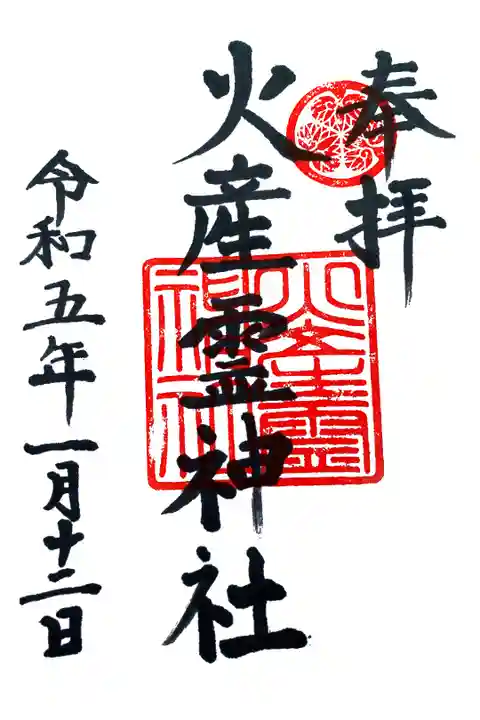 奉拝
火産霊神社
火産霊神社
令和五年一月十二日